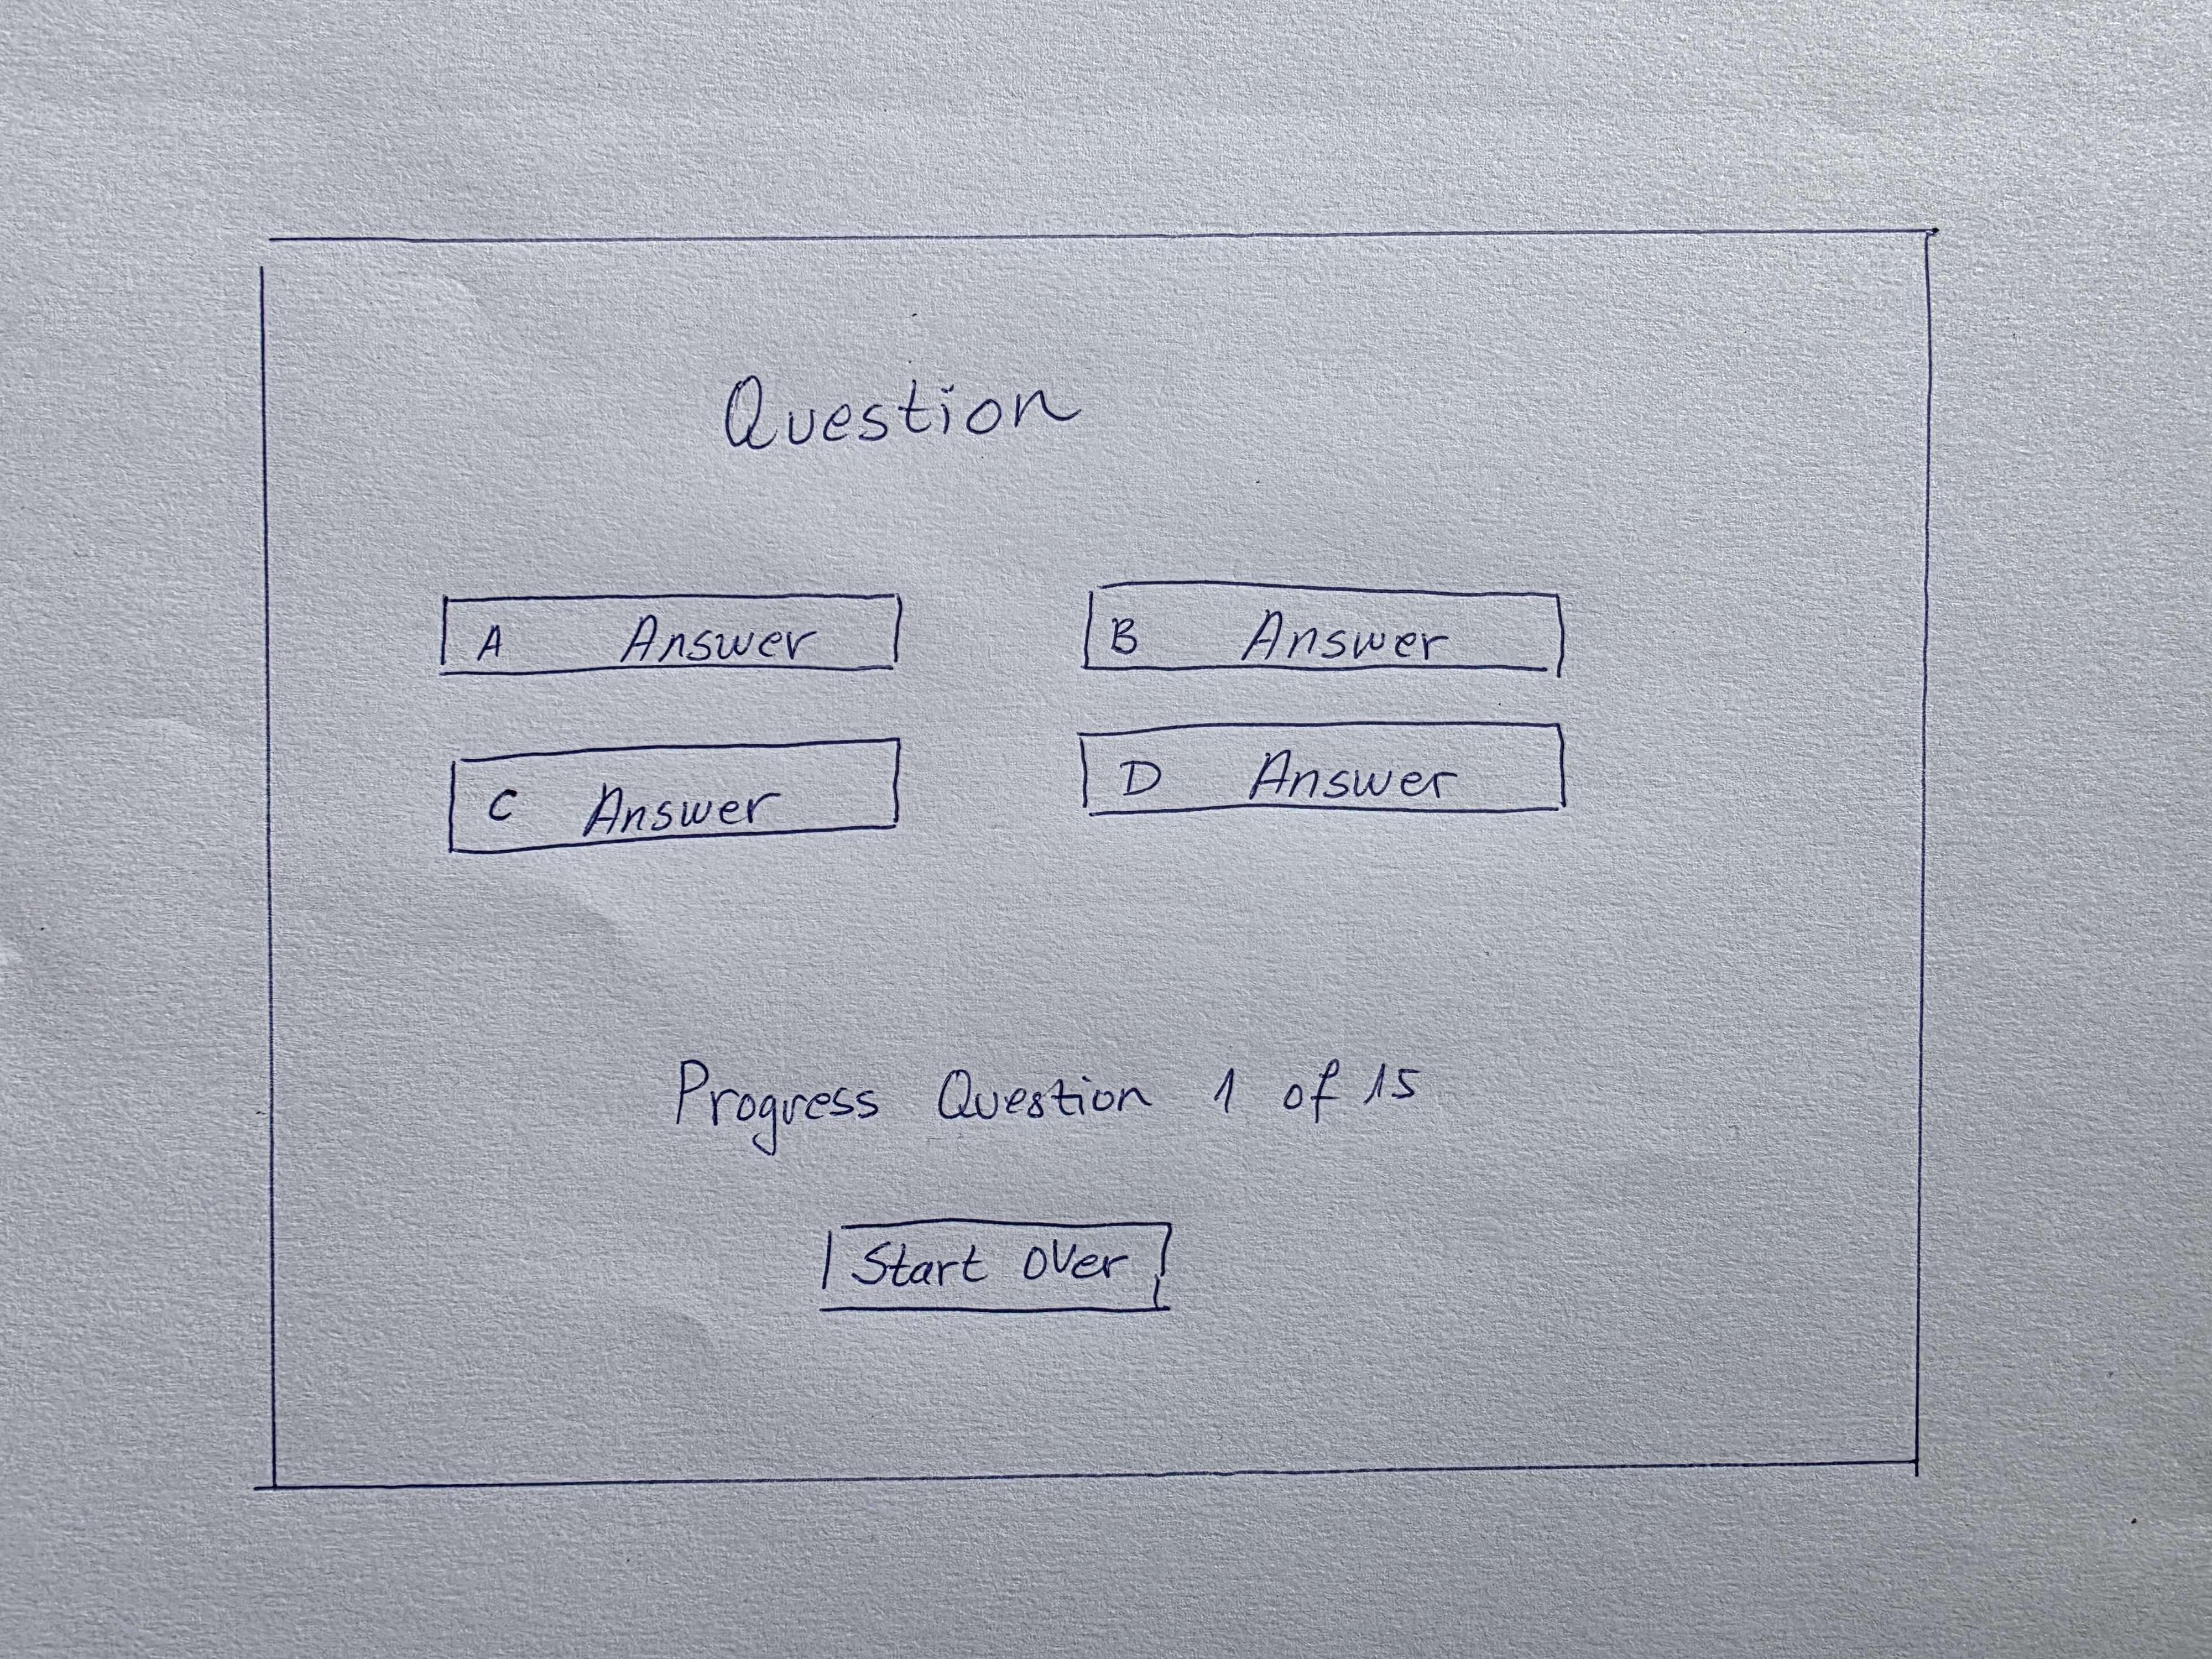 Question
A Answer
B Answer
C Answer
D Answer
Progress Question 1 of 15
Start over